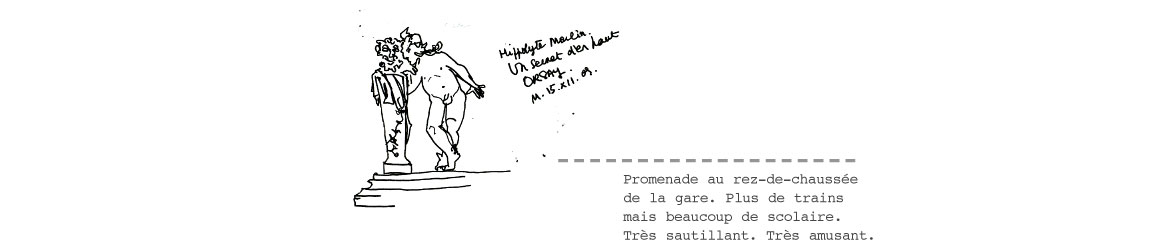 Hippolyte Moulin.
Un secret d'en haut
ORSAY.
M. 15.XII.09.
Promenade au rez-de-chaussée
de la gare. Plus de trains
mais beaucoup de scolaire.
Très sautillant. Très amusant.